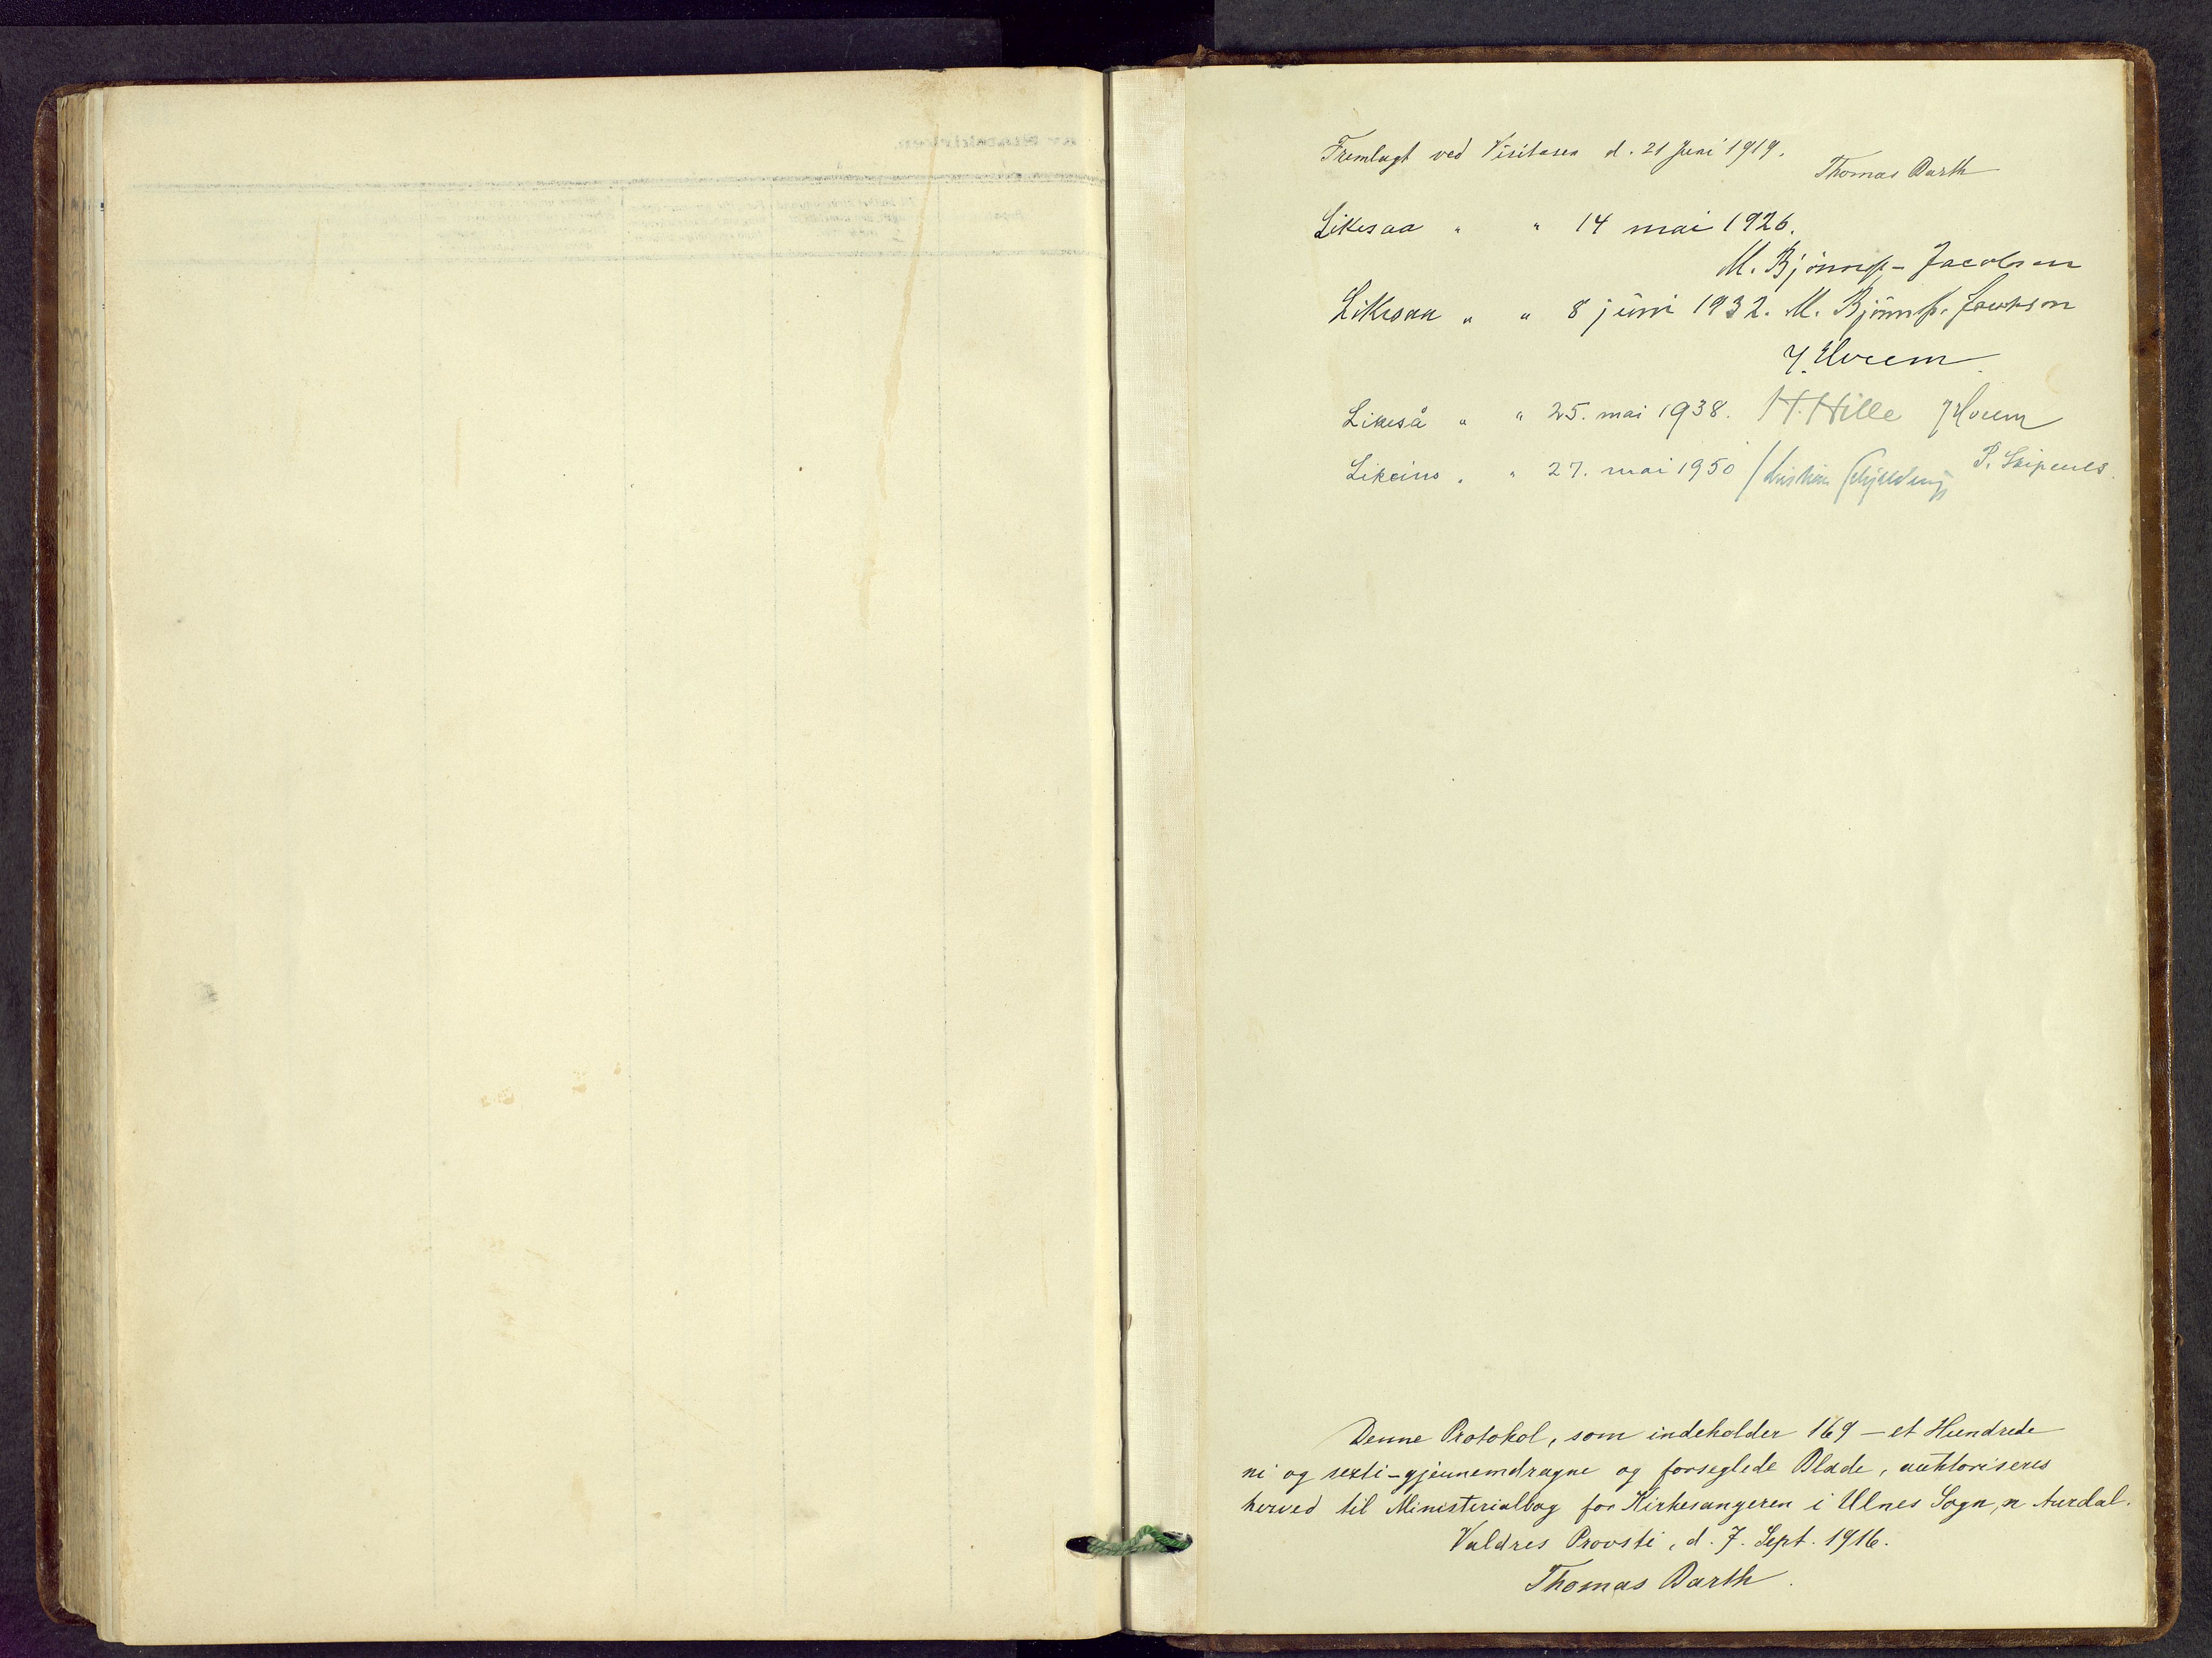 Fremlagt ved Visitasen d. 21 Juni 1919.
Thomas Barth
Likesaa " " 14 mai 1926.
M. Bjønnes-Jacobsen
Likesaa " " 8 juni 1932. M. Bjønnes-Jacobsen
J. Hveem
Likeså " " 25. mai 1938. H. Hille J Hveem
Likeins " " 27. mai 1950 Kristian Schjelderup P.
Denne Protokol, som indeholder 169 – et Hundrede
ni og sexti – gjennemdragne og forseglede Blade, authoriseres
herved til Ministerialbog for Kirkesangeren i Ulnes Sogn, n Aurdal.
Valdres Provsti, d. 7. Sept. 1916.
Thomas Barth.